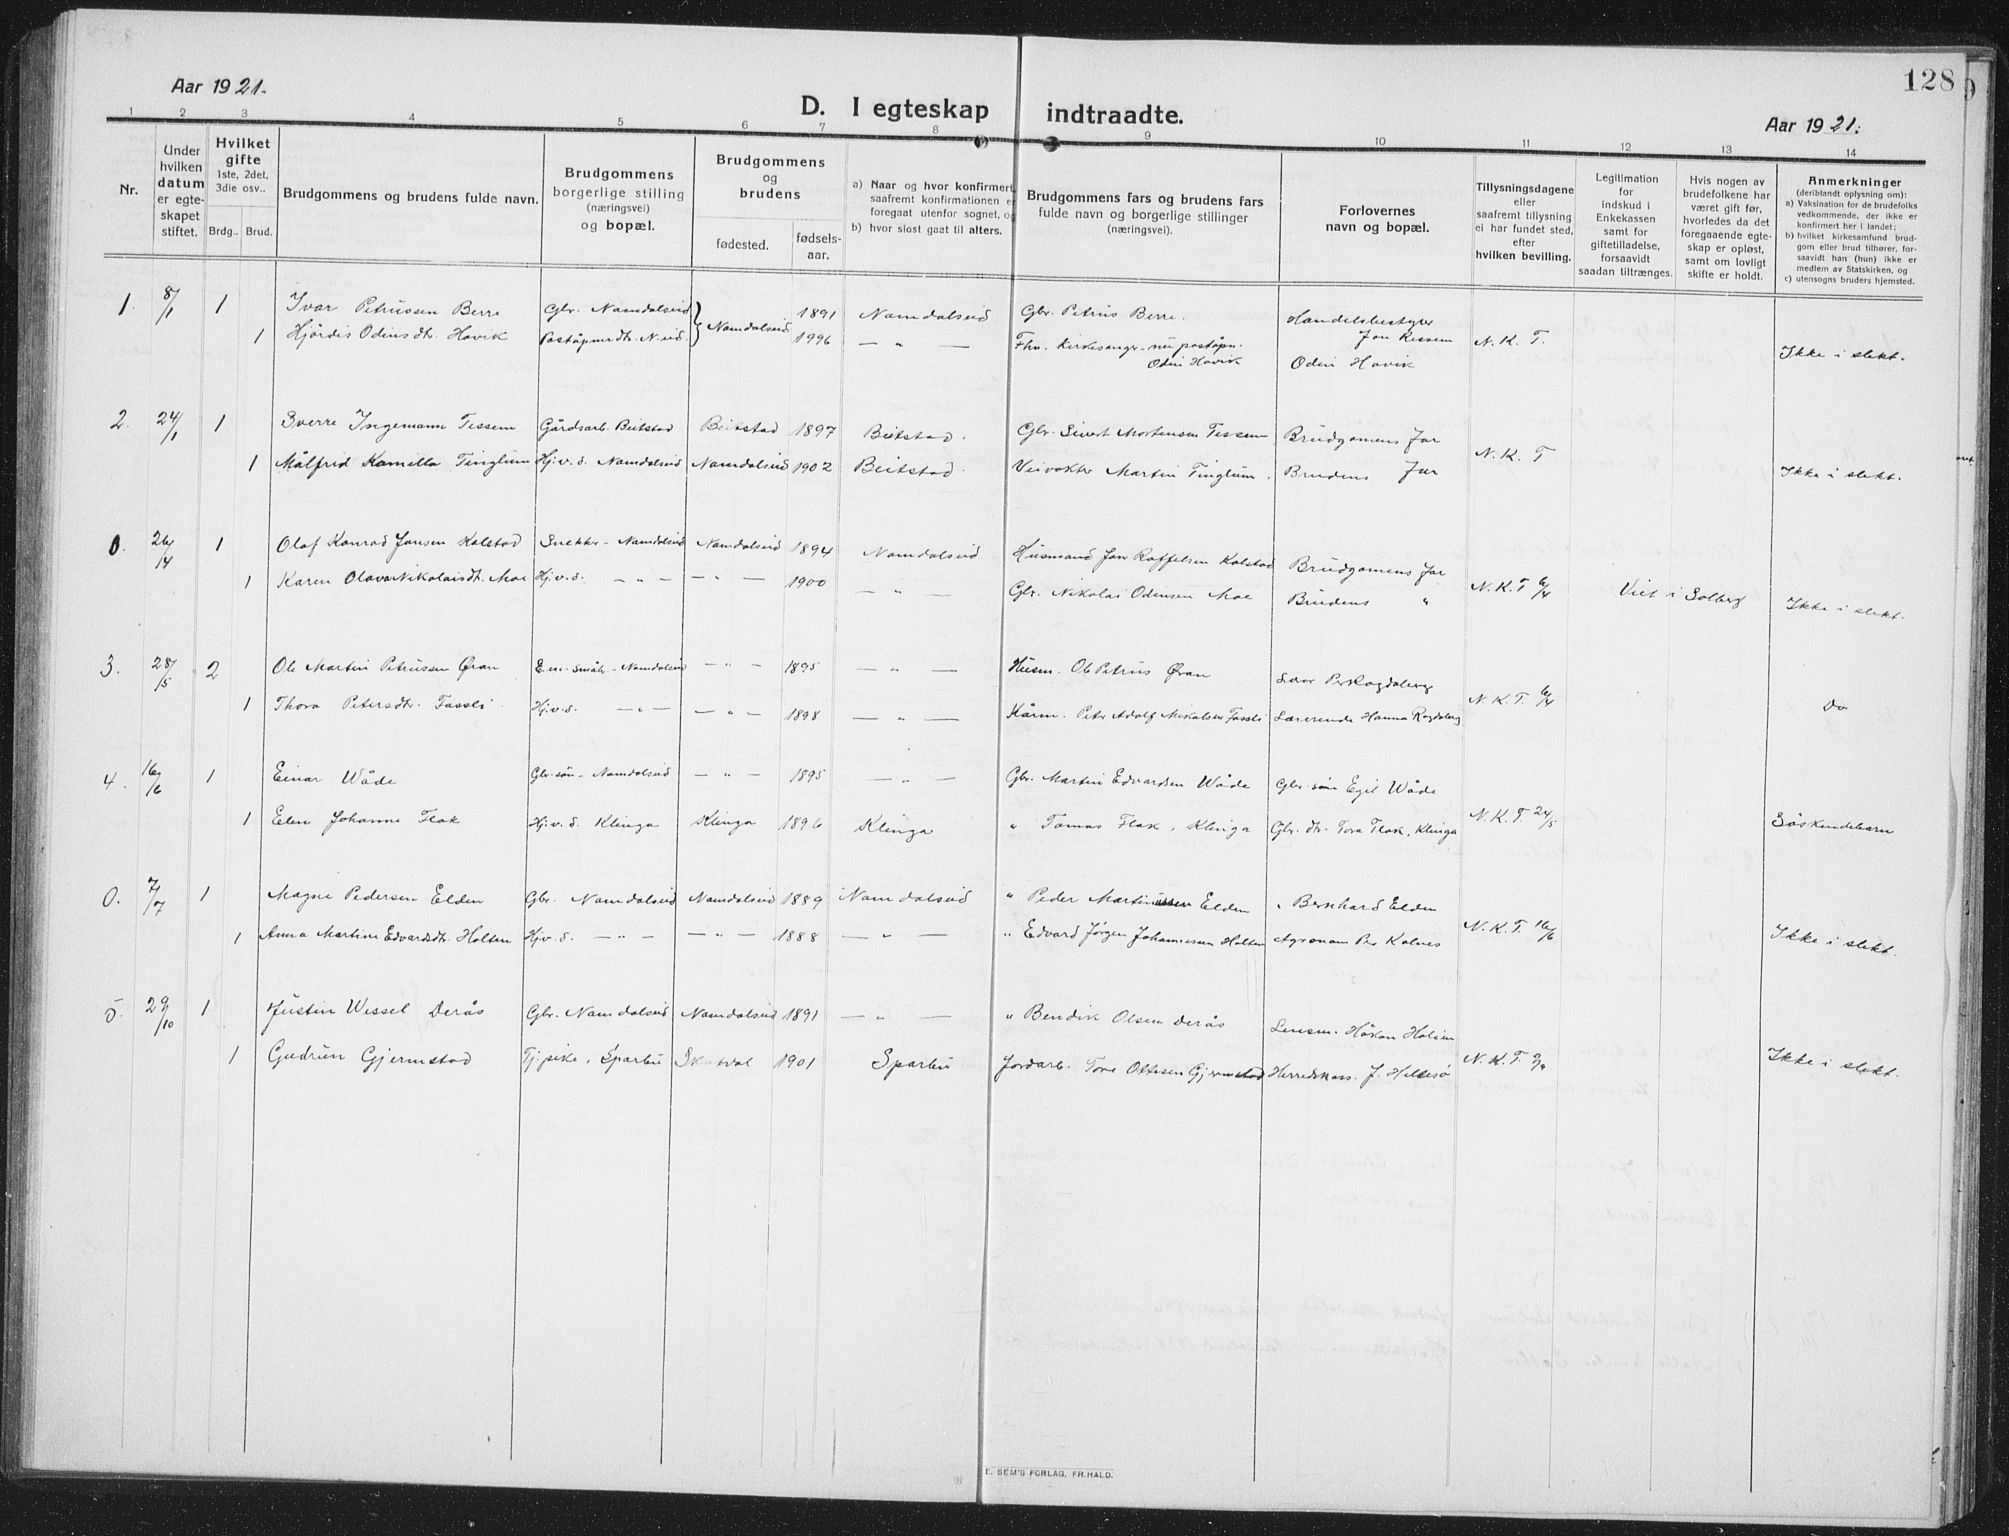 128
Aar 1921.
D. I egteskap indtraadte.
Aar 1921.
1 2 3 4 5 6 7 8 9 10 11 12 13 14
Nr.
Under hvilken datum er egte- skapet stiftet.
Hvilket gifte 1ste, 2det, 3die osv..
Brdg.. Brud.
Brudgommens og brudens fulde navn.
Brudgommens borgerlige stilling (næringsvei) og bopæl.
Brudgommens og brudens
fødested. fødsels- aar.
a) Naar og hvor konfirmert, saafremt konfirmationen er foregaat utenfor sognet, og
b) hvor sidst gaat til alters.
Brudgommens fars og brudens fars fulde navn og borgerlige stillinger (næringsvei).
Forlovernes navn og bopæl.
Tillysningsdagene eller saafremt tillysning ei har fundet sted, efter hvilken bevilling.
Legitimation for indskud i Enkekassen samt for giftetilladelse, forsaavidt saadan tiltrænges.
Hvis nogen av brudefolkene har været gift før, hvorledes da det foregaaende egte- skap er opløst, samt om lovligt skifte er holdt.
Anmerkninger (deriblandt oplysning om):
a) Vaksination for de brudefolks vedkommende, der ikke er konfirmert her i landet;
b) hvilket kirkesamfund brud- gom eller brud tilhører, for- saavidt han (hun) ikke er medlem av Statskirken, og
c) utensogns bruders hjemsted.
1. 8/1 1 Ivar Petrussen Berre Gbr. Namdalseid Namdalseid 1891 Namdalseid Gbr. Petrus Berre. Handelsbestyrer Jon Ressem
1 Hjördis Odinsdtr. Hovik Poståpnerdtr. N.eid. 1996 — " — Fhv. Kirkesanger - nu poståpn. Odin Hovik Odin Hovik N. K. T. Ikke i slekt.
2. 24/1 1 Sverre Ingemann Tessem Gårdsarb. Beitstad Beitstad 1897 Beitstad. Gbr. Sivert Mortensen Tessem Brudgomens far
1 Målfrid Kamilla Tinglum Hj.v.s. Namdalseid Namdalseid 1902 Beitstad. Veivokter Martin Tinglum. Brudens far N. K. T Ikke i slekt.
0. 26/14 1 Olaf Konrad Jansen Kolstad Snekker - Namdalseid Namdalseid 1894 Namdalseid Husmand Jon Roffelsen Kolstad Brudgomens far
1 Karen Olava Nikolaisdtr. Moe Hj.v.s. — " — — " — 1900 — " — Gbr. Nikolai Odinsen Moe Brudens " N. K. T 6/4 Viet i Solberg Ikke i slekt.
3. 28/5 2 Ole Martin Petrussen Øran E.m. småbr - Namdalseid — " — 1895 — " — Husm. Ole Petrus Øran Lærer Per Rogdaberg
1 Thora Petersdtr. Fossli. Hj.v.s. — " — — " — 1898 — " — Kårm. Peter Adolf Mikalsen Fossli Lærerinde Hanna Rogdaberg N. K. T. 6/4 Do
4. 16/6 1 Einar Wåde Gbr.søn - Namdalseid — " — 1895 — " — Gbr. Martin Edvardsen Wåde Gbr. søn Egil Wåde
1 Elen Johanne Flak Hj.v.s. Klinga Klinga 1896 Klinga " Tomas Flak, Klinga Gbr. dtr. Tora Flak, Klinga N. K. T. 24/5 Söskendebarn
0. 7/7 1 Magne Pedersen Elden Gbr. Namdalseid Namdalseid 1889 Namdalseid " Peder Martinussen Elden " Bernhard Elden
1 Anna Martine Edvardsdtr. Holten Hj.v.s. — " — — " — 1888 — " — " Edvard Jörgen Johannessen Holten Agronom Per Kolnes N. K. T. 16/6 Ikke i slekt.
5. 29/10 1 Justin Wessel Derås Gbr. Namdalseid Namdalseid 1891 — " — " Bendik Olsen Derås Lensm. Håkon Holien
1 Gudrun Gjermstad Tj.pike, Sparbu Skatval 1901 Sparbu Jordarb. Tore Ottesen Gjermstad Herredskass. J. Hellesö N. K. T. Ikke i slekt.
E. SEM'S FORLAG, FR.HALD.